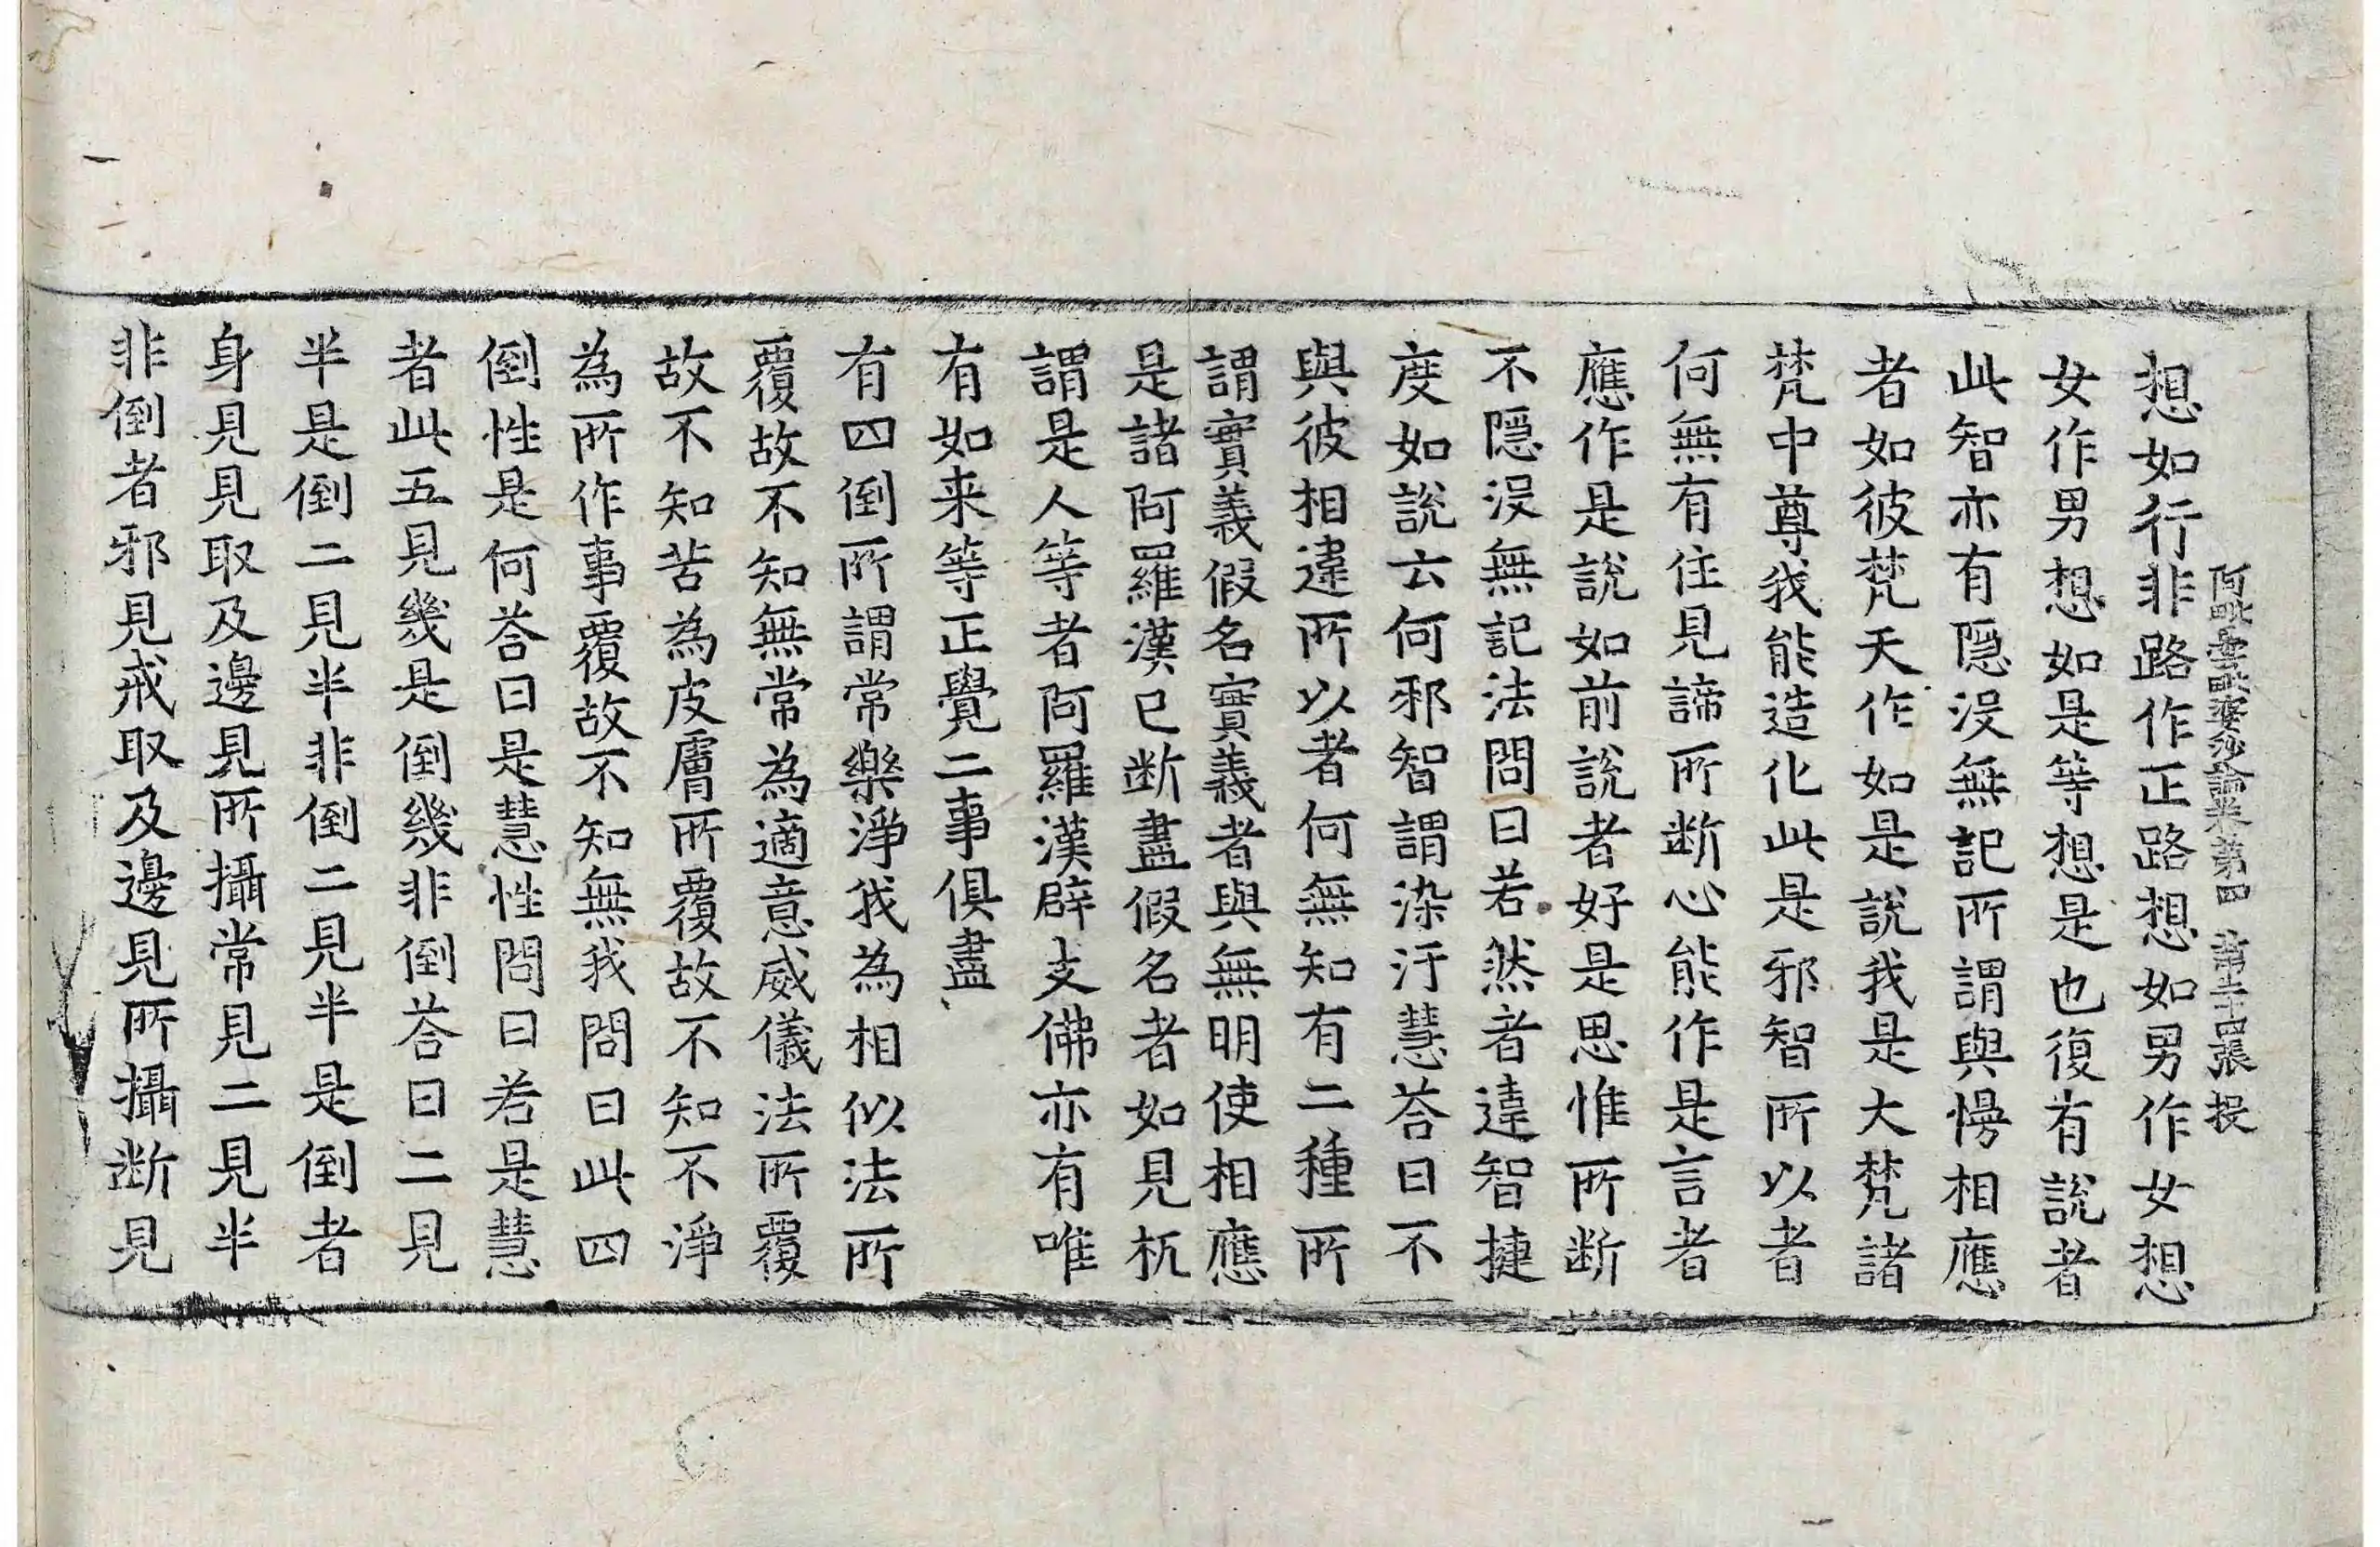 阿毗曇毗婆沙論卷第四 第二十四張 投
想如行非路作正路想如男作女想
女作男想如是等想是也復有說者
此智亦有隱沒無記所謂與慢相應
者如彼梵天作如是說我是大梵諸
梵中尊我能造化此是邪智所以者
何無有住見諦所断心能作是言者
應作是說如前說者好是思惟所断
不隱沒無記法問曰若然者違智揵
度如說云何邪智謂染汙慧荅曰不
與彼相違所以者何無知有二種所
謂實義假名實義者與無明使相應
是諸阿羅漢已断盡假名者如見杌
謂是人等者阿羅漢辟支佛亦有唯
有如来等正覺二事俱盡
有四倒所謂常樂淨我為相似法所
覆故不知無常為適意威儀法所覆
故不知苦為皮膚所覆故不知不淨
為所作事覆故不知無我問曰此四
倒性是何荅曰是慧性問曰若是慧
者此五見幾是倒幾非倒荅曰二見
半是倒二見半非倒二見半是倒者
身見見取及邊見所攝常見二見半
非倒者邪見戒取及邊見所攝断見